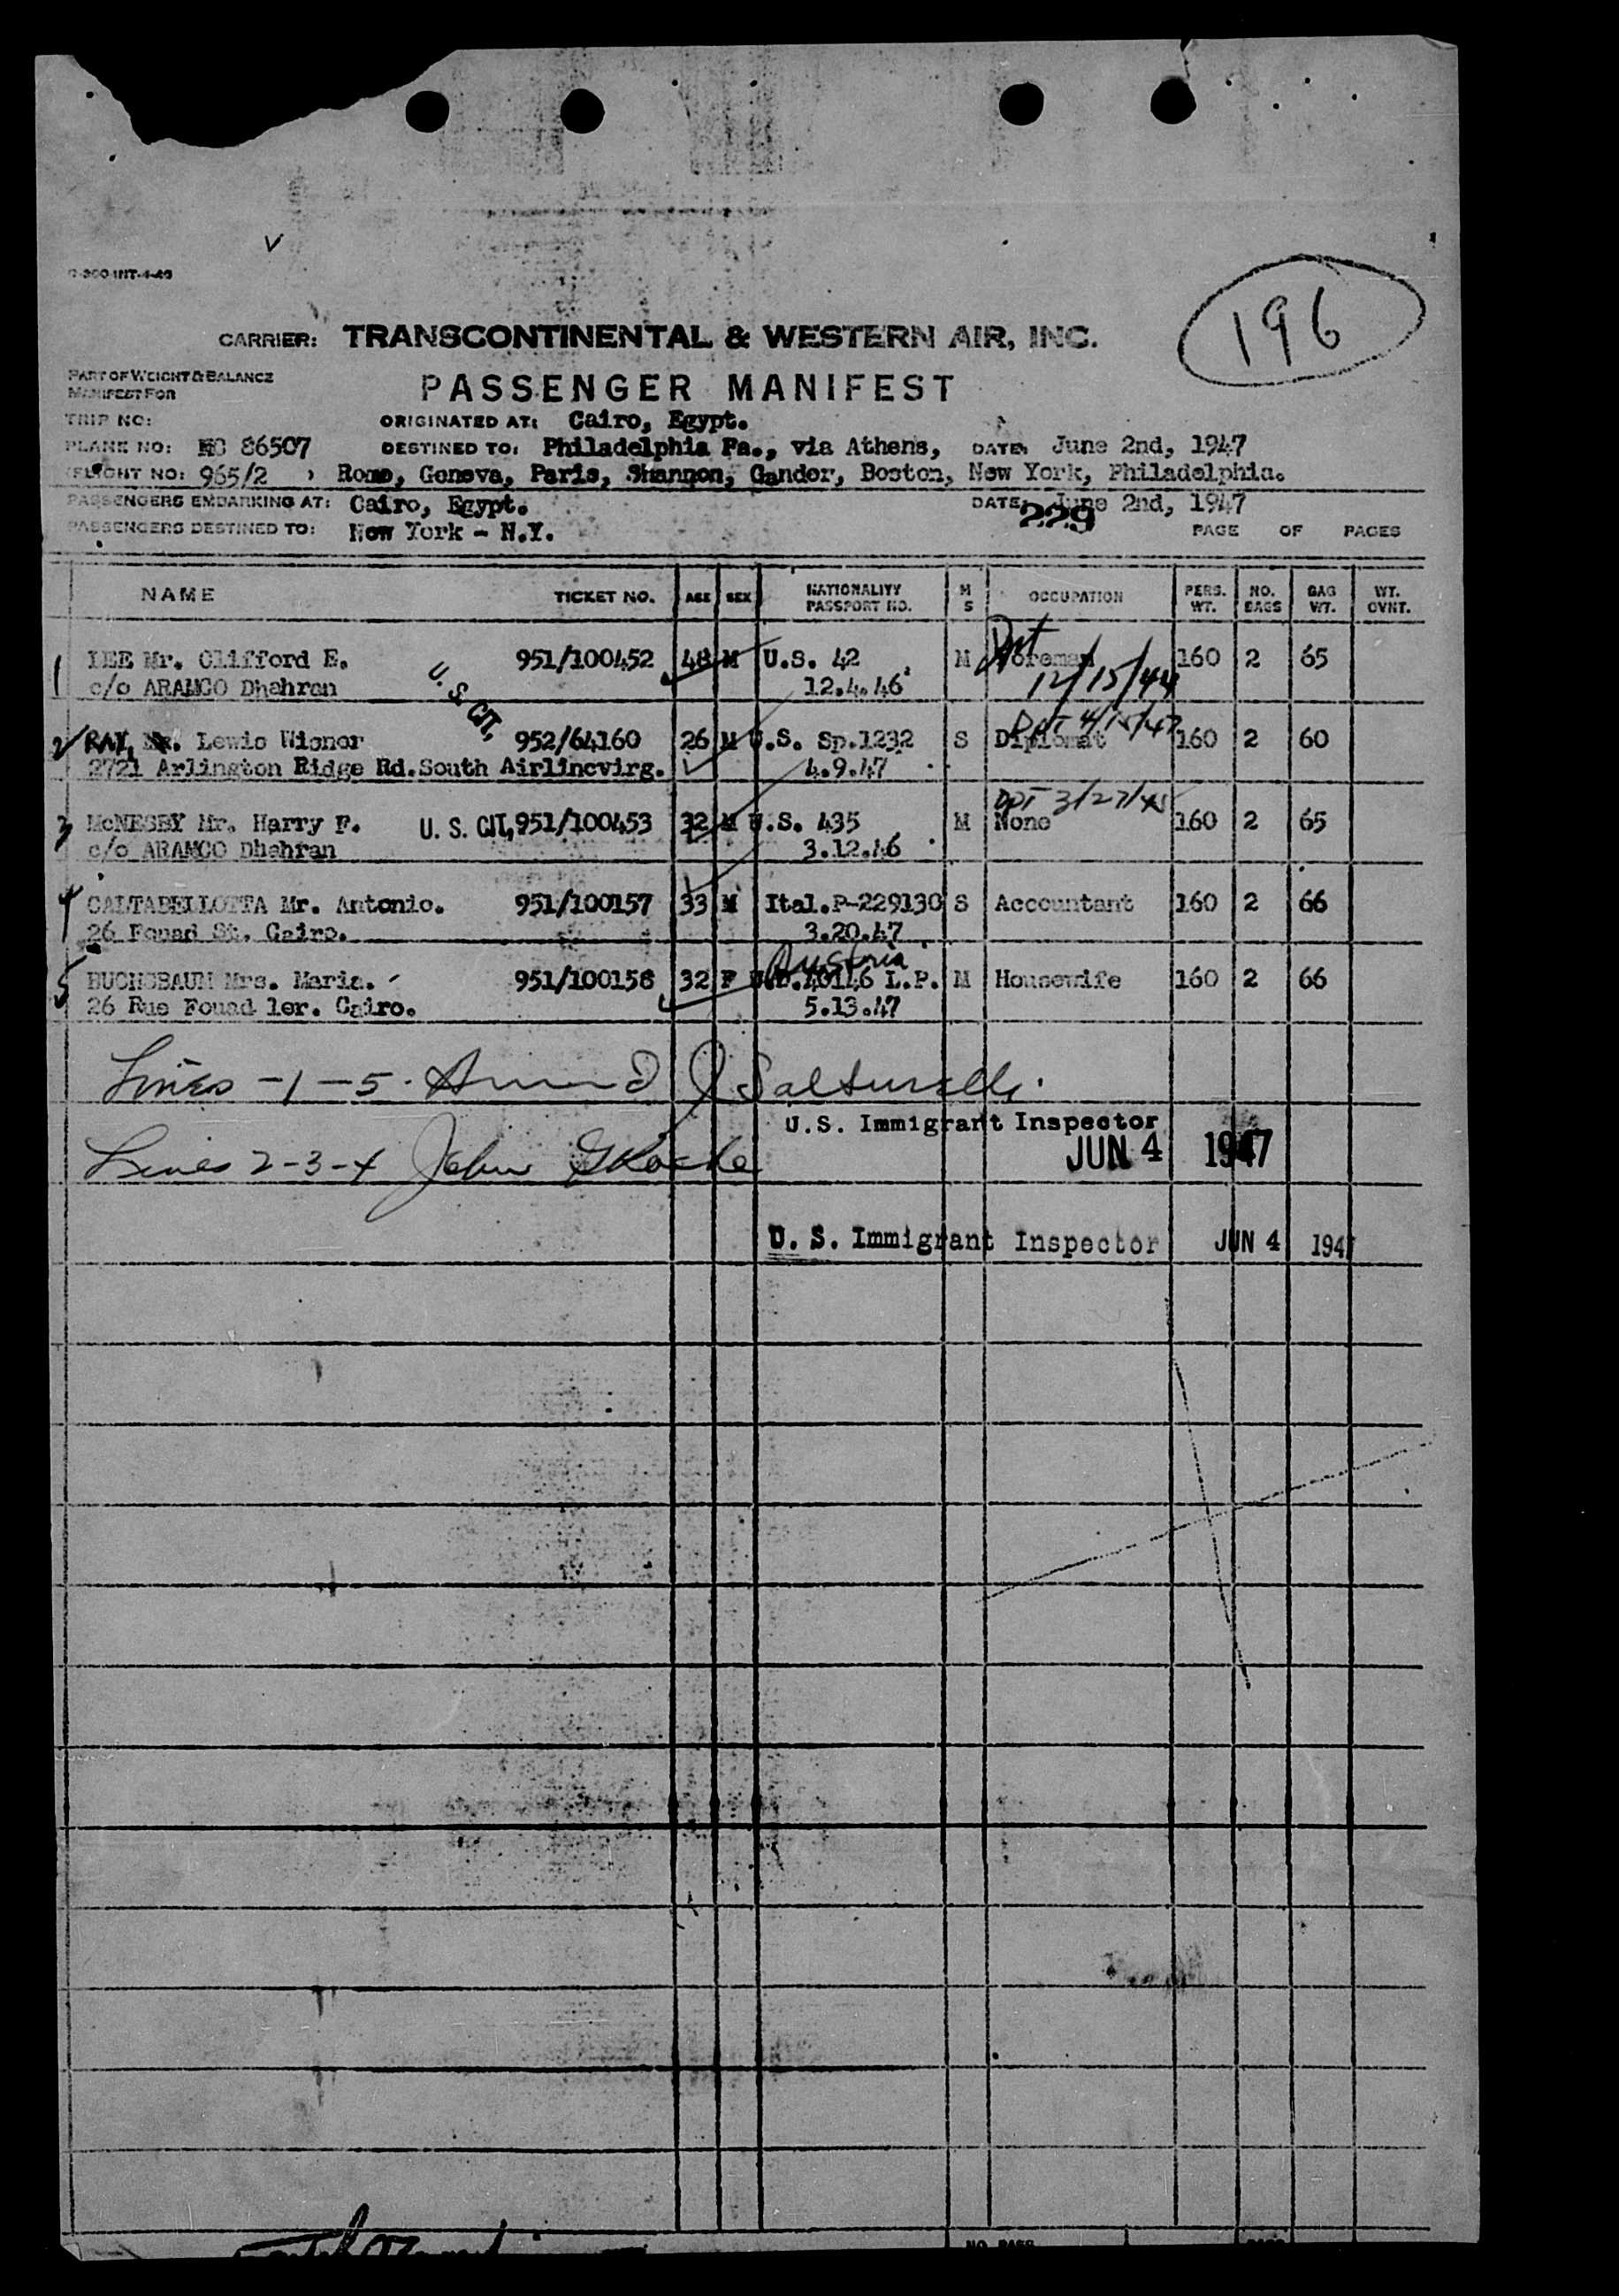 V
196
CARRIER: TRANSCONTINENTAL & WESTERN AIR, INC.
PART OF WEIGHT & BALANCE
MANIFEST FOR
PASSENGER MANIFEST
TRIP NO: ORIGINATED AT: Cairo, Egypt.
PLANE NO: NC 86507 DESTINED TO: Philadelphia Pa., via Athens, DATE: June 2nd, 1947
FLIGHT NO: 965/2 , Rome, Geneva, Paris, Shannon, Gander, Boston, New York, Philadelphia.
PASSENGERS EMBARKING AT: Cairo, Egypt. DATE: June 2nd, 1947
229
PASSENGERS DESTINED TO: New York - N.Y. PAGE OF PAGES
NAME TICKET NO. AGE SEX NATIONALITY PASSPORT NO. M S OCCUPATION PERS. WT. NO. BAGS BAG WT. WT. OVNT.
1 LEE Mr. Clifford E. 951/100452 48 M U.S. 42 M Foreman 160 2 65
c/o ARAMCO Dhahran 12.4.46 12/15/44
U. S. CIT.
DPT 4/15/47
2 RAY, Mr. Lewis Wisner 952/64160 26 M U.S. Sp.1232 S Diplomat 160 2 60
2721 Arlington Ridge Rd.South Airlincvirg. 4.9.47
DPT 3/27/45
3 McNESBY Mr. Harry F. U. S. CIT, 951/100453 32 M U.S. 435 M None 160 2 65
c/o ARAMCO Dhahran 3.12.46
4 CALTABELLOTTA Mr. Antonio. 951/100157 33 M Ital.P-229130 S Accountant 160 2 66
26 Fouad St. Cairo. 3.20.47
Austria
5 BUCHSBAUM Mrs. Maria. 951/100158 32 F 40146 L.P. M Housewife 160 2 66
26 Rue Fouad 1er. Cairo. 5.13.47
Lines -1-5.
U.S. Immigrant Inspector
JUN 4 1947
Lines 2-3-4 John
U. S. Immigrant Inspector JUN 4 1947
NO. PASS.